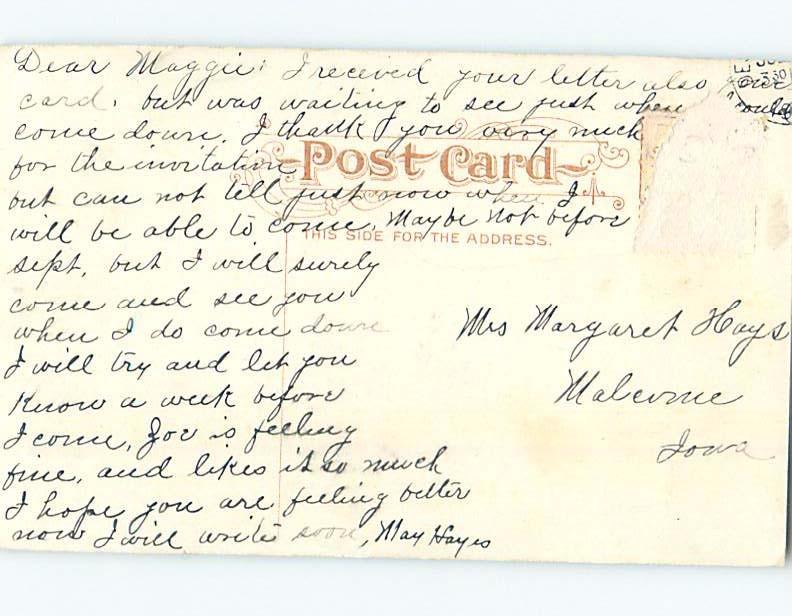 Dear Maggie: I receved your letter also your
card. but was waiting to see just when could
come down. I thank you very much
for the invitation
Post Card
but can not tell just now when I
will be able to come. Maybe not before
THIS SIDE FOR THE ADDRESS.
sept, but I will surely
come and see you
when I do come down
I will try and let you
Know a week before
I come, Zoe is feeling
fine, and likes it so much
I hope you are feeling better
now I will write soon, May Hayes
Mrs Margaret Hays
Malcome
Iowa